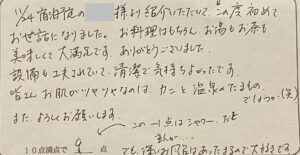 11/24 宿泊予定の　　様より紹介いただいて、二度初めて
お世話になりました。お料理はもちろん、お湯もお茶も
美味しくて大満足です。ありがとうございました。
設備も工夫されていて、清潔で気持ちよかったです。
皆さんお肌がツヤツヤなのは、カニと温泉のたまもの
でしょうか(笑)
また、よろしくお願いします。
10点満点で 9 点
この一点はシャワー、だと
まんが…
でも、深いお風呂はあたまるので大好きです。